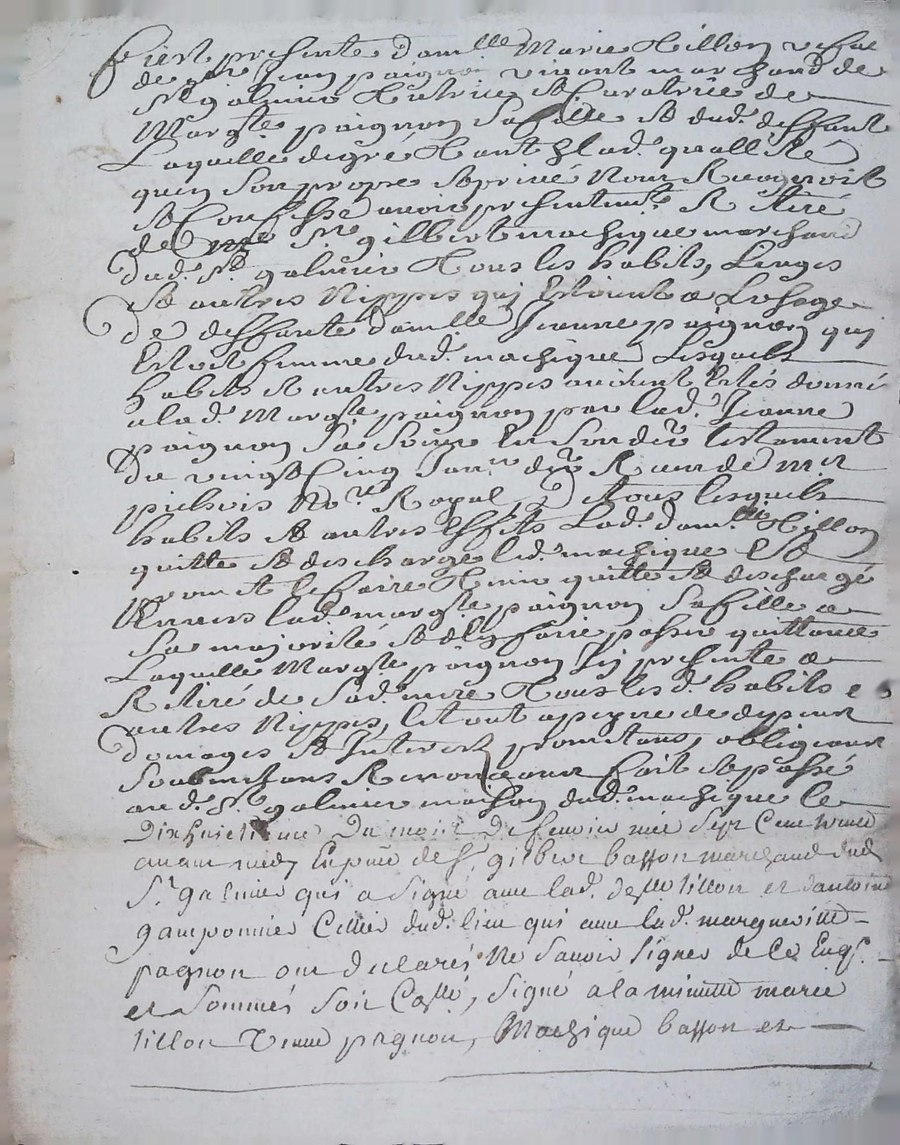 fust presente dam.lle Marie Tillon vefue
de s.r Jean paignon vivant marchand de
S.t galmier Tutrice & Curatrice de
Marg.te paignon sa fille & dud. deffunt
Laquelle degré Tant en lad. quallité
quen son propre & privé Nom Recognoist
& Confesse avoir presentem.t Retiré
de s.r gilbert machique marchand
dud. S.t galmier Tous les habits, Linges
& autres Nippes qui Estoient a Lusage
de deffunte dam.lle Jeanne paignon qui
Estoit femme dud. machique Lesquels
habits & autres Nippes avoient Estés donné
a lad. Marg.te paignon par lad. Jeanne
paignon sa soeur En son der. testament
du vingt Cinq Janv. der. Receu de m.e
pichois No.re Royal, Tous lesquels
habits & autres Effets Lad. dam.lle Tillon
quitte & descharge led. machique &
promet le faire Tenir quitte & deschargé
Envers lad. marg.te paignon sa fille a
sa majorité & den faire passer quittance
Laquelle Marg.te paignon Ey presente a
Retiré de sad. mere Tous lesd. habits &
autres Nippes, le tout a peyne de
domages & Interest promettans, obligeans
soubmettans Renonceans fait & passé
aud. S.t galmier maison dud. machique le
Dixhuictieme Du mois De fevrier mil sept Cent
avant midy En pnce de s.r gilbert basson marchand dud.
S.t galmier qui a signé avec lad. delle tillon et d'antoine
gamponnier Cellier dud. lieu qui avec lad. margueritte
pagnon ont declarés Ne savoir signer de Ce Enqs.
et sommés soit Collé, signé a la minutte marie
tillon veuve pagnon, Machique basson et